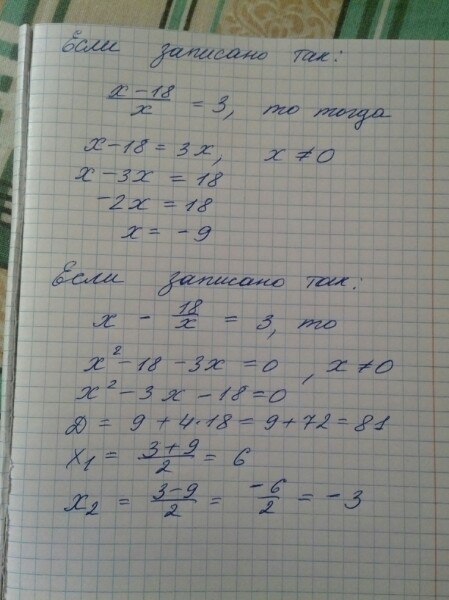 Если записано так:
x-18/x = 3, то тогда
x-18=3x, x≠0
x-3x=18
-2x=18
x=-9
Если записано так:
x - 18/x = 3, то
x²-18-3x=0, x≠0
x²-3x-18=0
D = 9+4·18=9+72=81
x₁ = 3+9/2 = 6
x₂ = 3-9/2 = -6/2 = -3